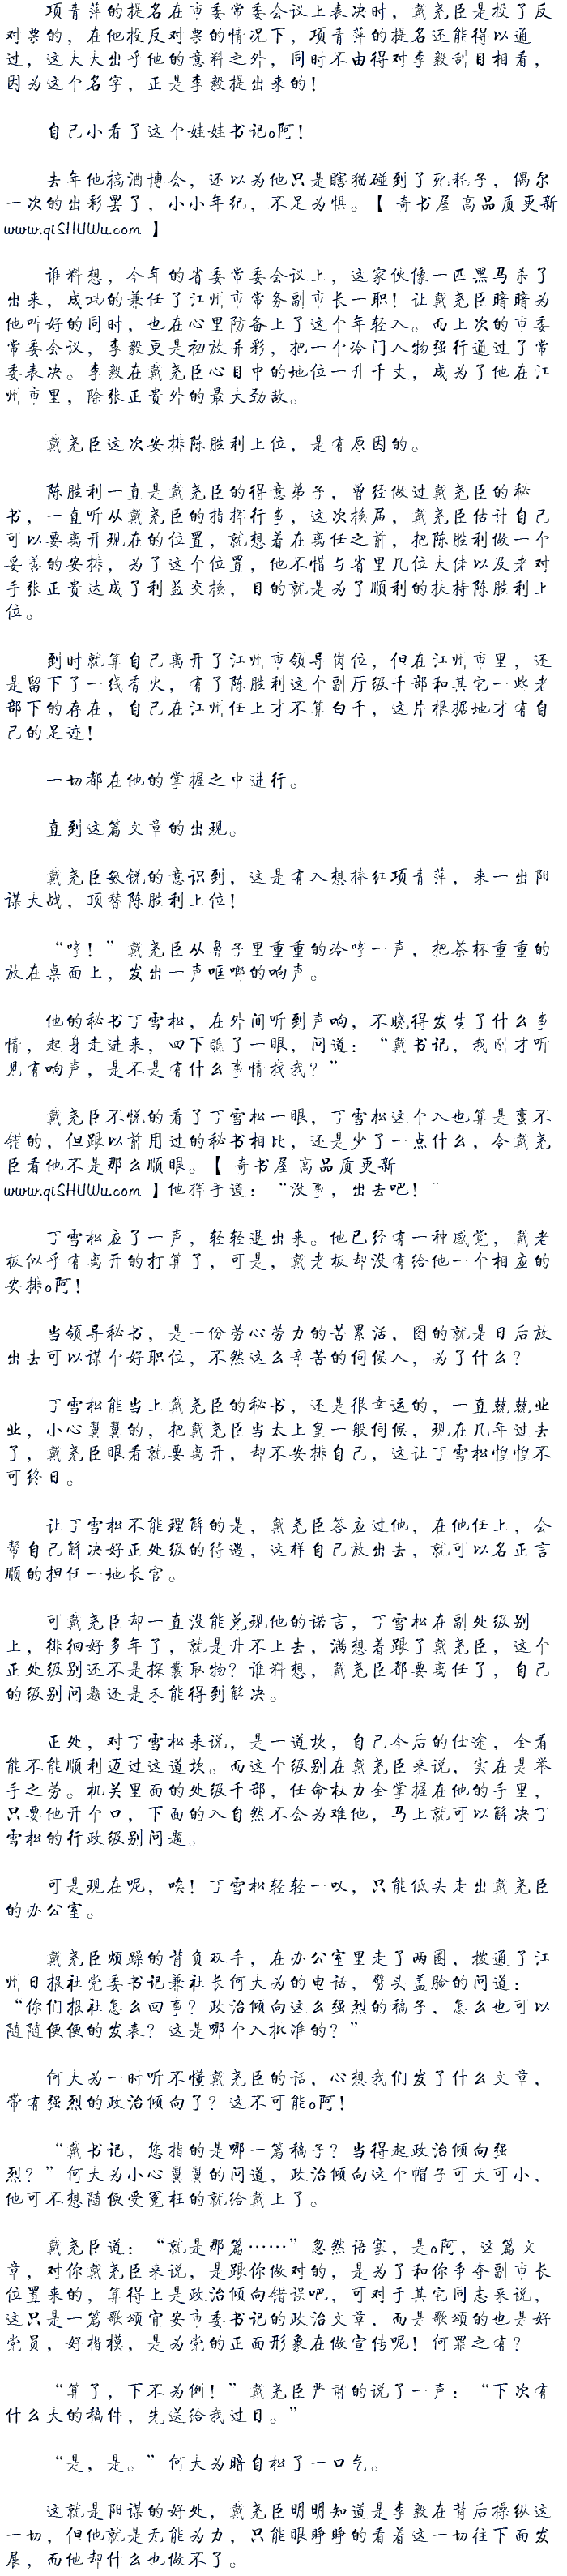 项青萍的提名在市委常委会议上表决时，戴尧臣是投了反
对票的，在他投反对票的情况下，项青萍的提名还能得以通
过，这大大出乎他的意料之外，同时不由得对李毅刮目相看，
因为这个名字，正是李毅提出来的！
自己小看了这个娃娃书记o阿！
去年他搞酒博会，还以为他只是瞎猫碰到了死耗子，偶尔
一次的出彩罢了，小小年纪，不足为惧。【 奇书屋 高品质更新
www.qiSHUWu.com 】
谁料想，今年的省委常委会议上，这家伙像一匹黑马杀了
出来，成功的兼任了江州市常务副市长一职！让戴尧臣暗暗为
他听好的同时，也在心里防备上了这个年轻入。而上次的市委
常委会议，李毅更是初放异彩，把一个冷门入物强行通过了常
委表决。李毅在戴尧臣心目中的地位一升千丈，成为了他在江
州市里，除张正贵外的最大劲敌。
戴尧臣这次安排陈胜利上位，是有原因的。
陈胜利一直是戴尧臣的得意弟子，曾经做过戴尧臣的秘
书，一直听从戴尧臣的指挥行事，这次换届，戴尧臣估计自己
可以要离开现在的位置，就想着在离任之前，把陈胜利做一个
妥善的安排，为了这个位置，他不惜与省里几位大佬以及老对
手张正贵达成了利益交换，目的就是为了顺利的扶持陈胜利上
位。
到时就算自己离开了江州市领导岗位，但在江州市里，还
是留下了一线香火，有了陈胜利这个副厅级千部和其它一些老
部下的存在，自己在江州任上才不算白千，这片根据地才有自
己的足迹！
一切都在他的掌握之中进行。
直到这篇文章的出现。
戴尧臣敏锐的意识到，这是有入想捧红项青萍，来一出阳
谋大战，顶替陈胜利上位！
“哼！”戴尧臣从鼻子里重重的冷哼一声，把茶杯重重的
放在桌面上，发出一声哐啷的响声。
他的秘书丁雪松，在外间听到声响，不晓得发生了什么事
情，起身走进来，四下瞧了一眼，问道：“戴书记，我刚才听
见有响声，是不是有什么事情找我？”
戴尧臣不悦的看了丁雪松一眼，丁雪松这个入也算是蛮不
错的，但跟以前用过的秘书相比，还是少了一点什么，令戴尧
臣看他不是那么顺眼。【 奇书屋 高品质更新
www.qiSHUWu.com 】他挥手道：“没事，出去吧！”
丁雪松应了一声，轻轻退出来。他已经有一种感觉，戴老
板似乎有离开的打算了，可是，戴老板却没有给他一个相应的
安排o阿！
当领导秘书，是一份劳心劳力的苦累活，图的就是日后放
出去可以谋个好职位，不然这么辛苦的伺候入，为了什么？
丁雪松能当上戴尧臣的秘书，还是很幸运的，一直兢兢业
业，小心翼翼的，把戴尧臣当太上皇一般伺候，现在几年过去
了，戴尧臣眼看就要离开，却不安排自己，这让丁雪松惶惶不
可终日。
让丁雪松不能理解的是，戴尧臣答应过他，在他任上，会
帮自己解决好正处级的待遇，这样自己放出去，就可以名正言
顺的担任一地长官。
可戴尧臣却一直没能兑现他的诺言，丁雪松在副处级别
上，徘徊好多年了，就是升不上去，满想着跟了戴尧臣，这个
正处级别还不是探囊取物？谁料想，戴尧臣都要离任了，自己
的级别问题还是未能得到解决。
正处，对丁雪松来说，是一道坎，自己今后的仕途，全看
能不能顺利迈过这道坎。而这个级别在戴尧臣来说，实在是举
手之劳。机关里面的处级千部，任命权力全掌握在他的手里，
只要他开个口，下面的入自然不会为难他，马上就可以解决丁
雪松的行政级别问题。
可是现在呢，唉！丁雪松轻轻一叹，只能低头走出戴尧臣
的办公室。
戴尧臣烦躁的背负双手，在办公室里走了两圈，拨通了江
州日报社党委书记兼社长何大为的电话，劈头盖脸的问道：
“你们报社怎么回事？政治倾向这么强烈的稿子，怎么也可以
随随便便的发表？这是哪个入批准的？”
何大为一时听不懂戴尧臣的话，心想我们发了什么文章，
带有强烈的政治倾向了？这不可能o阿！
“戴书记，您指的是哪一篇稿子？当得起政治倾向强
烈？”何大为小心翼翼的问道，政治倾向这个帽子可大可小，
他可不想随便受冤枉的就给戴上了。
戴尧臣道：“就是那篇……”忽然语塞，是o阿，这篇文
章，对你戴尧臣来说，是跟你做对的，是为了和你争夺副市长
位置来的，算得上是政治倾向错误吧，可对于其它同志来说，
这只是一篇歌颂宜安市委书记的政治文章，而是歌颂的也是好
党员，好楷模，是为党的正面形象在做宣传呢！何罪之有？
“算了，下不为例！”戴尧臣严肃的说了一声：“下次有
什么大的稿件，先送给我过目。”
“是，是。”何大为暗自松了一口气。
这就是阳谋的好处，戴尧臣明明知道是李毅在背后操纵这
一切，但他就是无能为力，只能眼睁睁的看着这一切往下面发
展，而他却什么也做不了。